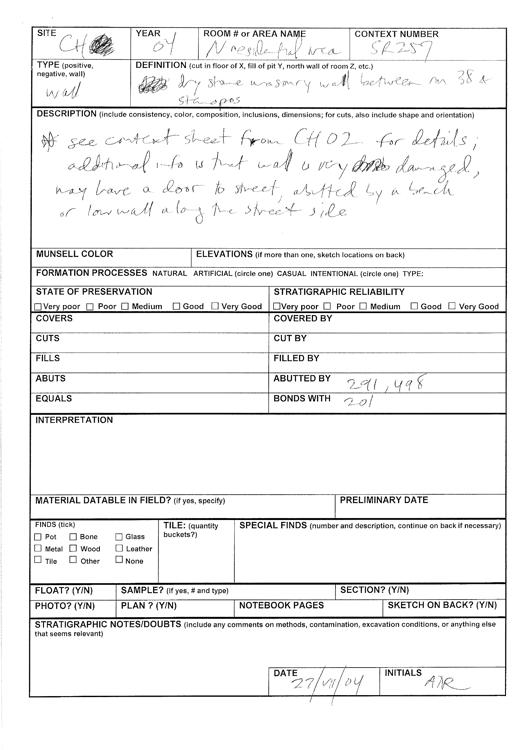 SITE CH
YEAR 04
ROOM # or AREA NAME N residential area
CONTEXT NUMBER SR257
TYPE (positive, negative, wall) wall
DEFINITION (cut in floor of X, fill of pit Y, north wall of room Z, etc.)
dry stone masonry wall between rm 38 &
DESCRIPTION (include consistency, color, composition, inclusions, dimensions; for cuts, also include shape and orientation)
see context sheet from CH02 for details;
additional info is that wall is very damaged,
may have a door to street, abutted by a bench
or low wall along the street side
MUNSELL COLOR
ELEVATIONS (if more than one, sketch locations on back)
FORMATION PROCESSES NATURAL ARTIFICIAL (circle one) CASUAL INTENTIONAL (circle one) TYPE:
STATE OF PRESERVATION
Very poor Poor Medium Good Very Good
STRATIGRAPHIC RELIABILITY
Very poor Poor Medium Good Very Good
COVERS
COVERED BY
CUTS
CUT BY
FILLS
FILLED BY
ABUTS
ABUTTED BY 291, 498
EQUALS
BONDS WITH 201
INTERPRETATION
MATERIAL DATABLE IN FIELD? (if yes, specify)
PRELIMINARY DATE
FINDS (tick)
Pot Bone Glass
Metal Wood Leather
Tile Other None
TILE: (quantity
buckets?)
SPECIAL FINDS (number and description, continue on back if necessary)
FLOAT? (Y/N)
SAMPLE? (if yes, # and type)
SECTION? (Y/N)
PHOTO? (Y/N)
PLAN ? (Y/N)
NOTEBOOK PAGES
SKETCH ON BACK? (Y/N)
STRATIGRAPHIC NOTES/DOUBTS (include any comments on methods, contamination, excavation conditions, or anything else
that seems relevant)
DATE 27/VII/04
INITIALS